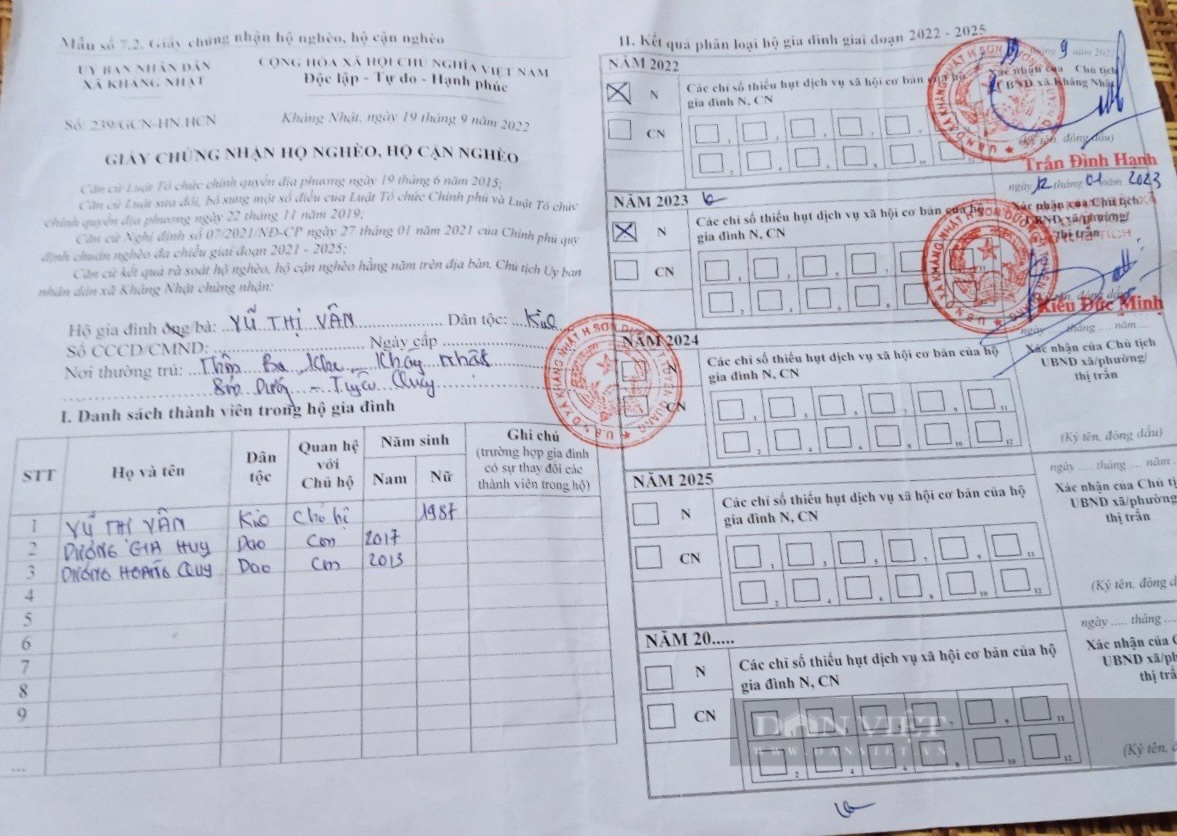 Mẫu số 7.2. Giấy chứng nhận hộ nghèo, hộ cận nghèo
ỦY BAN NHÂN DÂN
XÃ KHÁNG NHẬT
CỘNG HÒA XÃ HỘI CHỦ NGHĨA VIỆT NAM
Độc lập - Tự do - Hạnh phúc
Số: 239/GCN-HN.HCN
Kháng Nhật, ngày 19 tháng 9 năm 2022
GIẤY CHỨNG NHẬN HỘ NGHÈO, HỘ CẬN NGHÈO
Căn cứ Luật Tổ chức chính quyền địa phương ngày 19 tháng 6 năm 2015;
Căn cứ Luật sửa đổi, bổ sung một số điều của Luật Tổ chức Chính phủ và Luật Tổ chức
chính quyền địa phương ngày 22 tháng 11 năm 2019;
Căn cứ Nghị định số 07/2021/NĐ-CP ngày 27 tháng 01 năm 2021 của Chính phủ quy
định chuẩn nghèo đa chiều giai đoạn 2021 - 2025;
Căn cứ kết quả rà soát hộ nghèo, hộ cận nghèo hằng năm trên địa bàn, Chủ tịch Ủy ban
nhân dân xã Kháng Nhật chứng nhận:
Hộ gia đình ông/bà: VŨ THỊ VÂN Dân tộc:
Số CCCD/CMND: Ngày cấp
Nơi thường trú: Kháng Nhật
Sơn Dương - Tuyên Quang
I. Danh sách thành viên trong hộ gia đình
STT Họ và tên Dân tộc Quan hệ với Chủ hộ Năm sinh Nam Nữ Ghi chú (trường hợp gia đình có sự thay đổi các thành viên trong hộ)
1 VŨ THỊ VÂN Chủ hộ 1987
2 DƯƠNG GIA HUY Dao Con 2017
3 DƯƠNG HOÀNG QUY Dao Con 2013
4
5
6
7
8
9
...
II. Kết quả phân loại hộ gia đình giai đoạn 2022 - 2025
NĂM 2022
N
CN
Các chỉ số thiếu hụt dịch vụ xã hội cơ bản của hộ
gia đình N, CN
19 tháng 9 năm 2022
Xác nhận của Chủ tịch
UBND xã Kháng Nhật
(Ký tên, đóng dấu)
Trần Đình Hạnh
NĂM 2023
N
CN
Các chỉ số thiếu hụt dịch vụ xã hội cơ bản của hộ
gia đình N, CN
ngày 12 tháng 01 năm 2023
Xác nhận của Chủ tịch
UBND xã/phường/
thị trấn
Kiều Đức Minh
NĂM 2024
N
CN
Các chỉ số thiếu hụt dịch vụ xã hội cơ bản của hộ
gia đình N, CN
ngày .... tháng .... năm ...
Xác nhận của Chủ tịch
UBND xã/phường/
thị trấn
(Ký tên, đóng dấu)
NĂM 2025
N
CN
Các chỉ số thiếu hụt dịch vụ xã hội cơ bản của hộ
gia đình N, CN
ngày .... tháng .... năm
Xác nhận của Chủ tị
UBND xã/phường
thị trấn
(Ký tên, đóng d
NĂM 20.....
N
CN
Các chỉ số thiếu hụt dịch vụ xã hội cơ bản của hộ
gia đình N, CN
ngày ..... tháng ....
Xác nhận của C
UBND xã/ph
thị trấ
(Ký tên, đ
DÂN VIỆT
WWW.DANVIET.VN